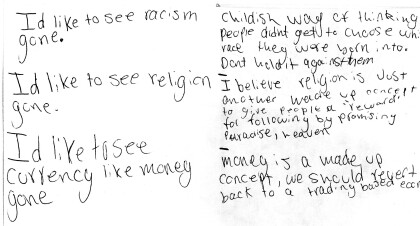 I'd like to see racism
gone.
I'd like to see religion
gone.
Id like to see
currency like money
gone
Childish way of thinking
people didnt get to choose
race they were born into.
Dont hold it against them
I believe religion is Just
another made up concept
to give people a "reward"
for following by promising
Paradise, heaven
money is a made up
concept, we should revert
back to a trading based